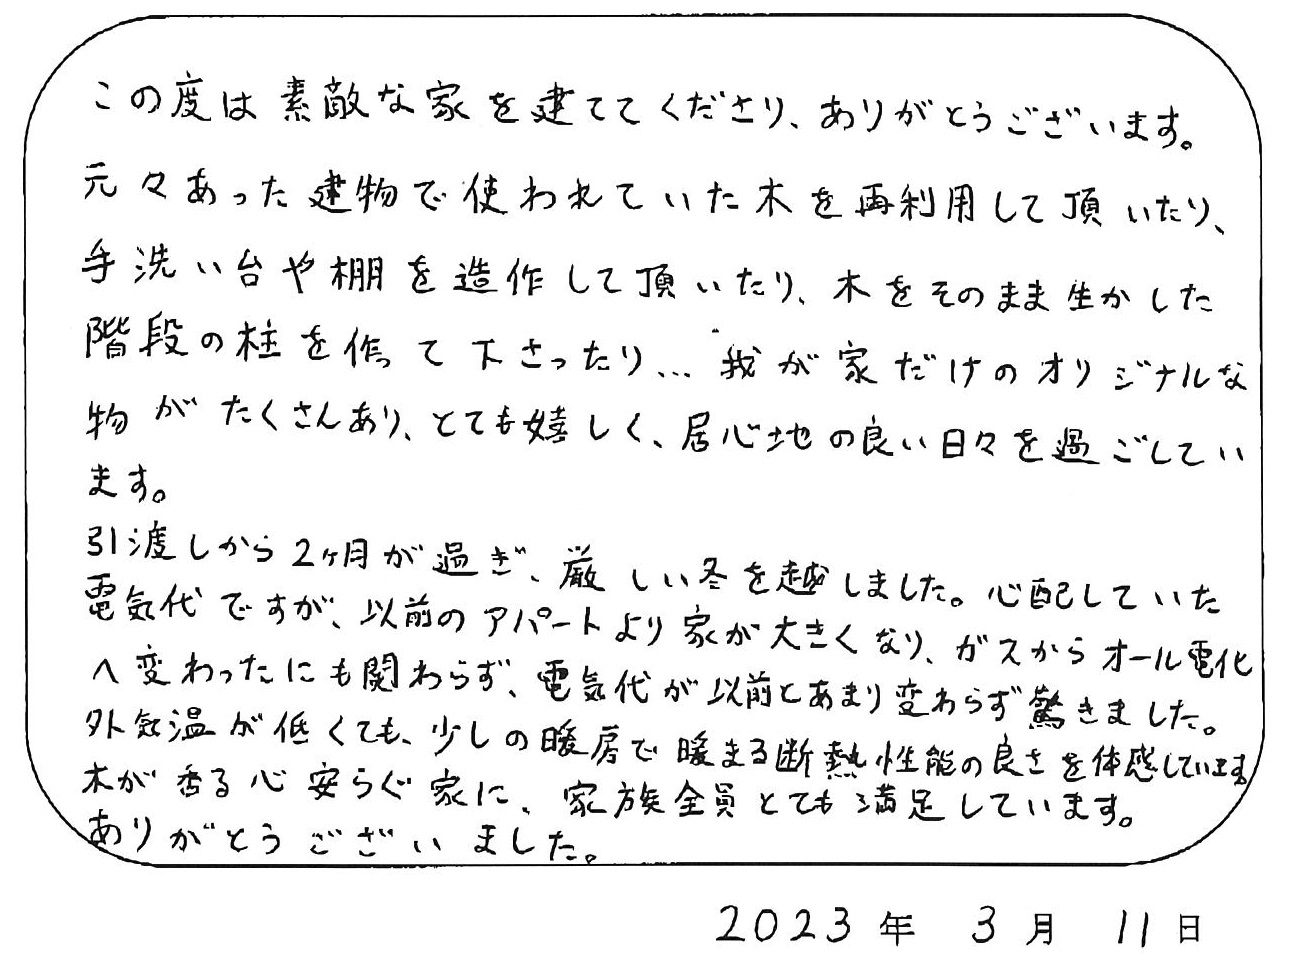 この度は素敵な家を建ててくださり、ありがとうございます。
元々あった建物で使われていた木を再利用して頂いたり、
手洗い台や棚を造作して頂いたり、木をそのまま生かした
階段の柱を作って下さったり…我が家だけのオリジナルな
物がたくさんあり、とても嬉しく、居心地の良い日々を過ごしてい
ます。
引渡しから2ヶ月が過ぎ、厳しい冬を越しました。心配していた
電気代ですが、以前のアパートより家が大きくなり、ガスからオール電化
へ変わったにも関わらず、電気代が以前とあまり変わらず驚きました。
外気温が低くても、少しの暖房で暖まる断熱性能の良さを体感しています
木が香る心安らぐ家に、家族全員とても満足しています。
ありがとうございました。
2023年 3月 11日